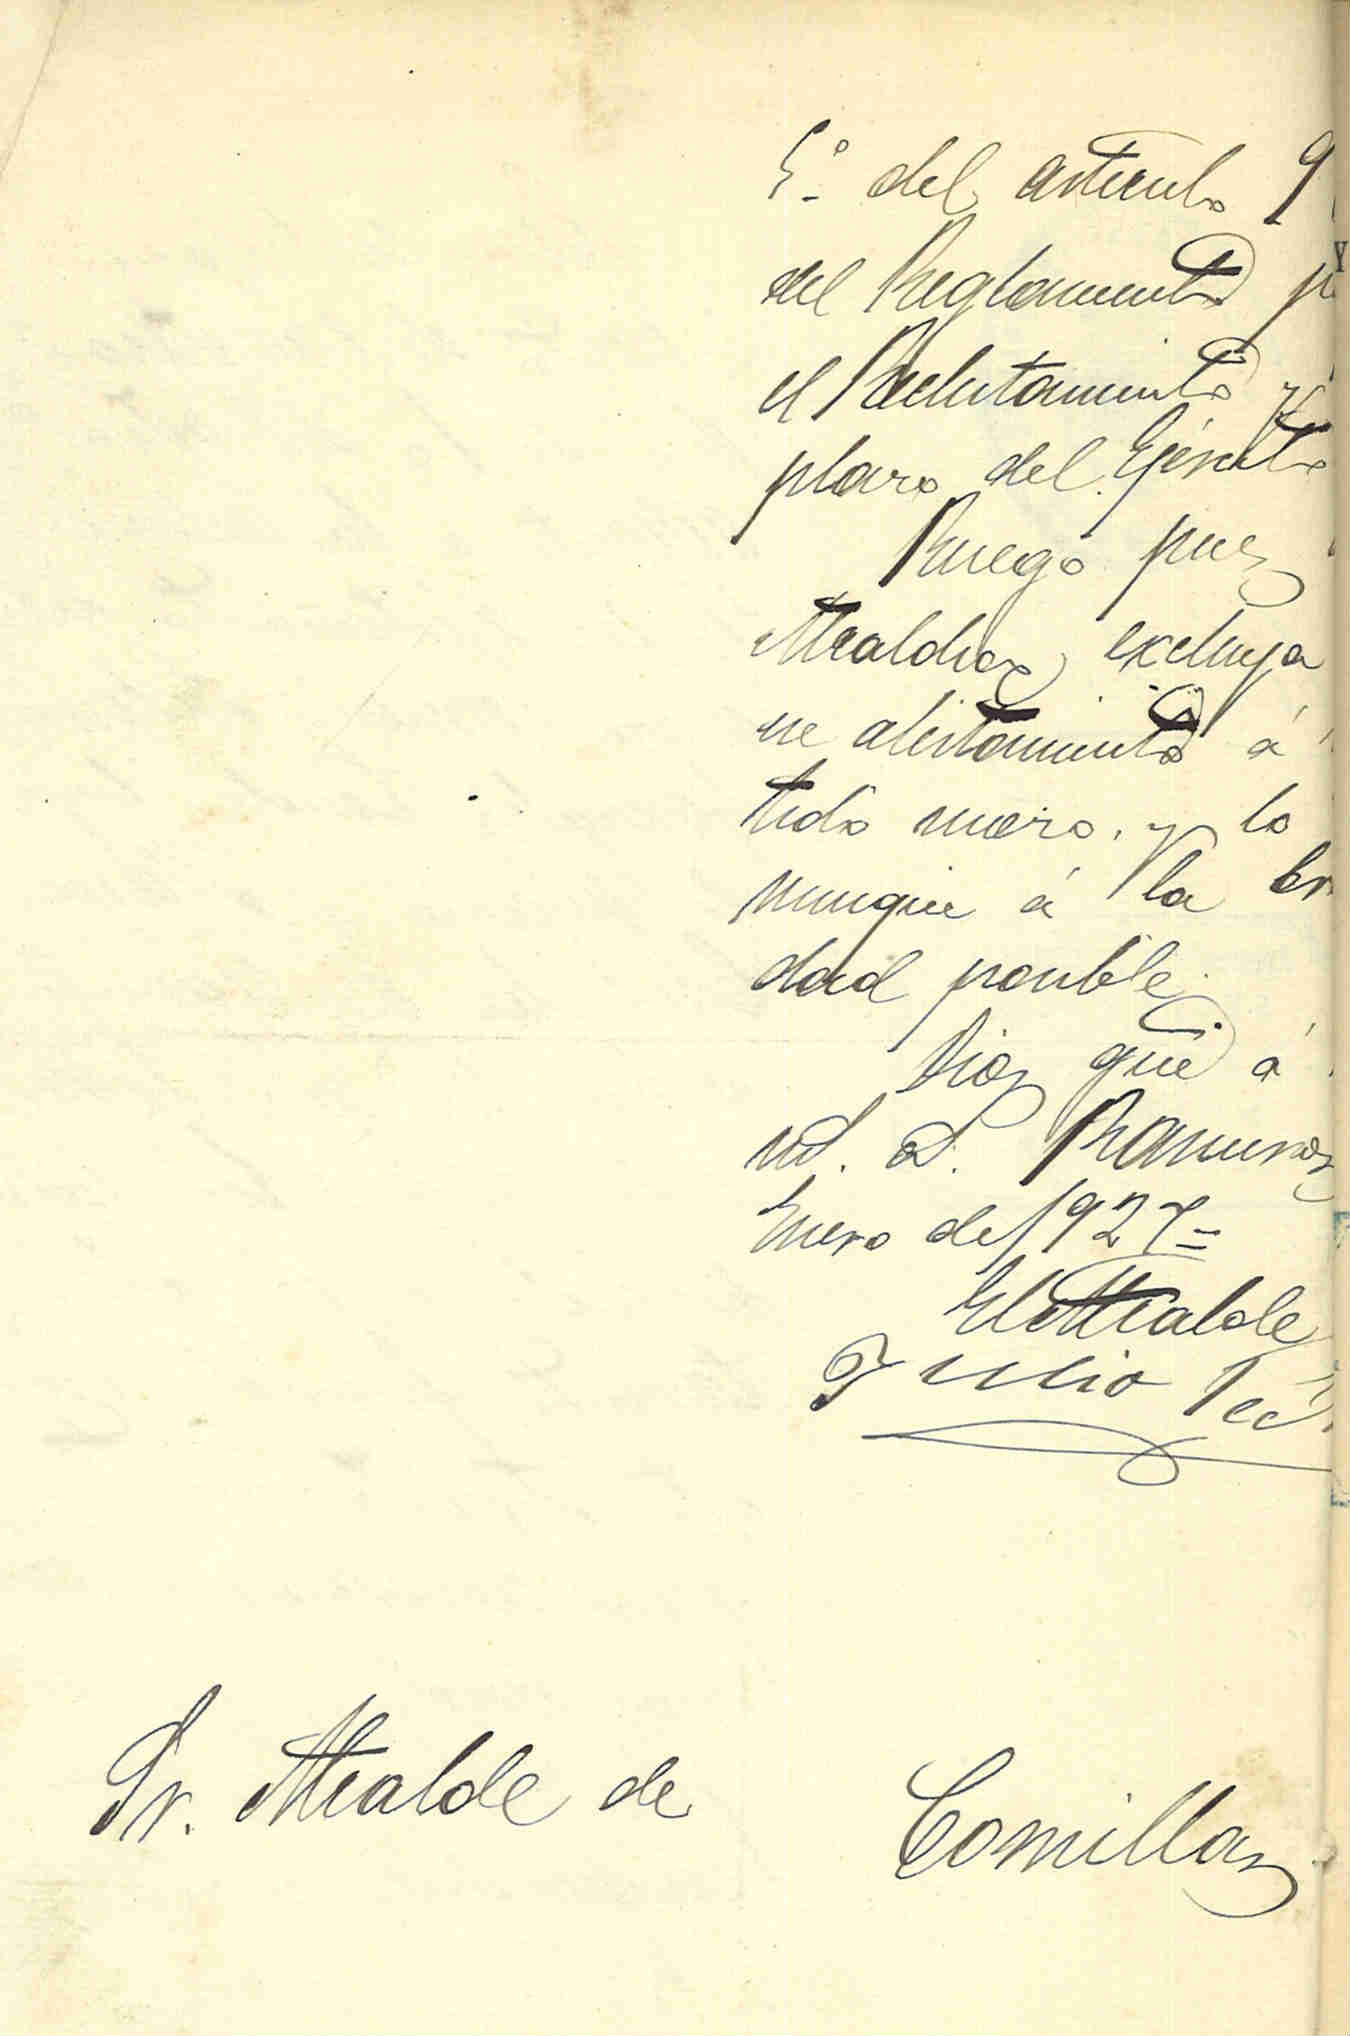 5º del articulo 9
del Reglamento p
el Reclutamiento y
plazo del Ejército
Ruego pues
Alcaldia, excluya
ne alistamiento á
tido mozo, y lo
munique á la br
dad posible.
Dios gue á
ud. a. Ramires
Enero de 1927=
El Alcalde
Julio
Sr. Alcalde de Comillas